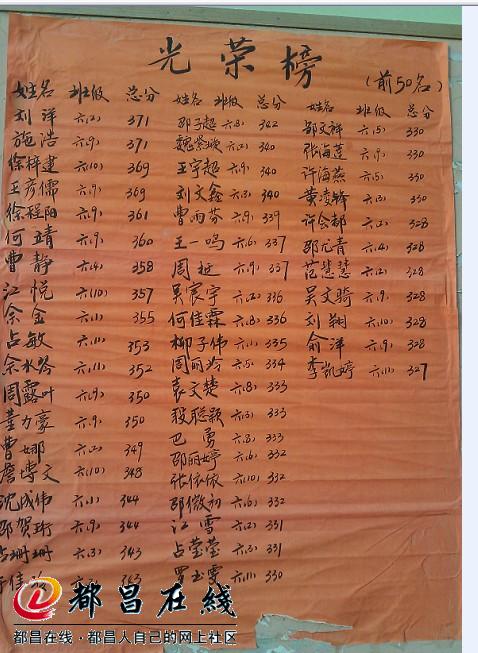 光荣榜
(前50名)
姓名 班级 总分
刘洋 六(2) 371
施浩 六(9) 371
徐梓建 六(10) 369
王彦儒 六(9) 369
徐程阳 六(9) 361
何靖 六(9) 360
曹静 六(4) 358
江悦 六(10) 357
余金 六(1) 355
占敏 六(11) 353
余水琴 六(11) 352
周露叶 六(9) 350
董力豪 六(9) 350
曹娜 六(2) 349
詹博文 六(10) 348
沈成伟 六(1) 344
邵贺珩 六(9) 344
占珊珊 六(3) 343
343
姓名 班级 总分
邵子超 六(8) 342
魏紫璇 六(2) 340
王宇超 六(9) 340
刘文鑫 六(3) 340
曹雨芬 六(9) 339
王一鸣 六(6) 337
周挺 六(9) 337
吴寰宇 六(2) 336
何佳霖 六(8) 336
柳子伟 六(11) 335
周丽玲 六(5) 334
袁文楚 六(8) 333
段聪颖 六(3) 333
巴勇 六(8) 333
邵丽婷 六(6) 332
张依依 六(10) 332
邵微初 六(6) 332
江雪 六(2) 331
占莹莹 六(3) 331
罗玉雯 六(11) 330
姓名 班级 总分
邵文祥 六(5) 330
张海莲 六(9) 330
许海燕 六(5) 330
黄凌锋 六(3) 330
许会都 六(2) 328
邵元青 六(4) 328
范慧慧 六(2) 328
吴文骑 六(9) 328
刘翔 六(10) 328
俞洋 六(9) 328
李凯婷 六(11) 327
都昌在线
都昌在线·都昌人自己的网上社区